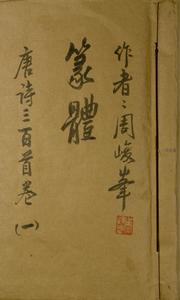 作者：周峻峯
篆體
唐诗三百首卷(一)